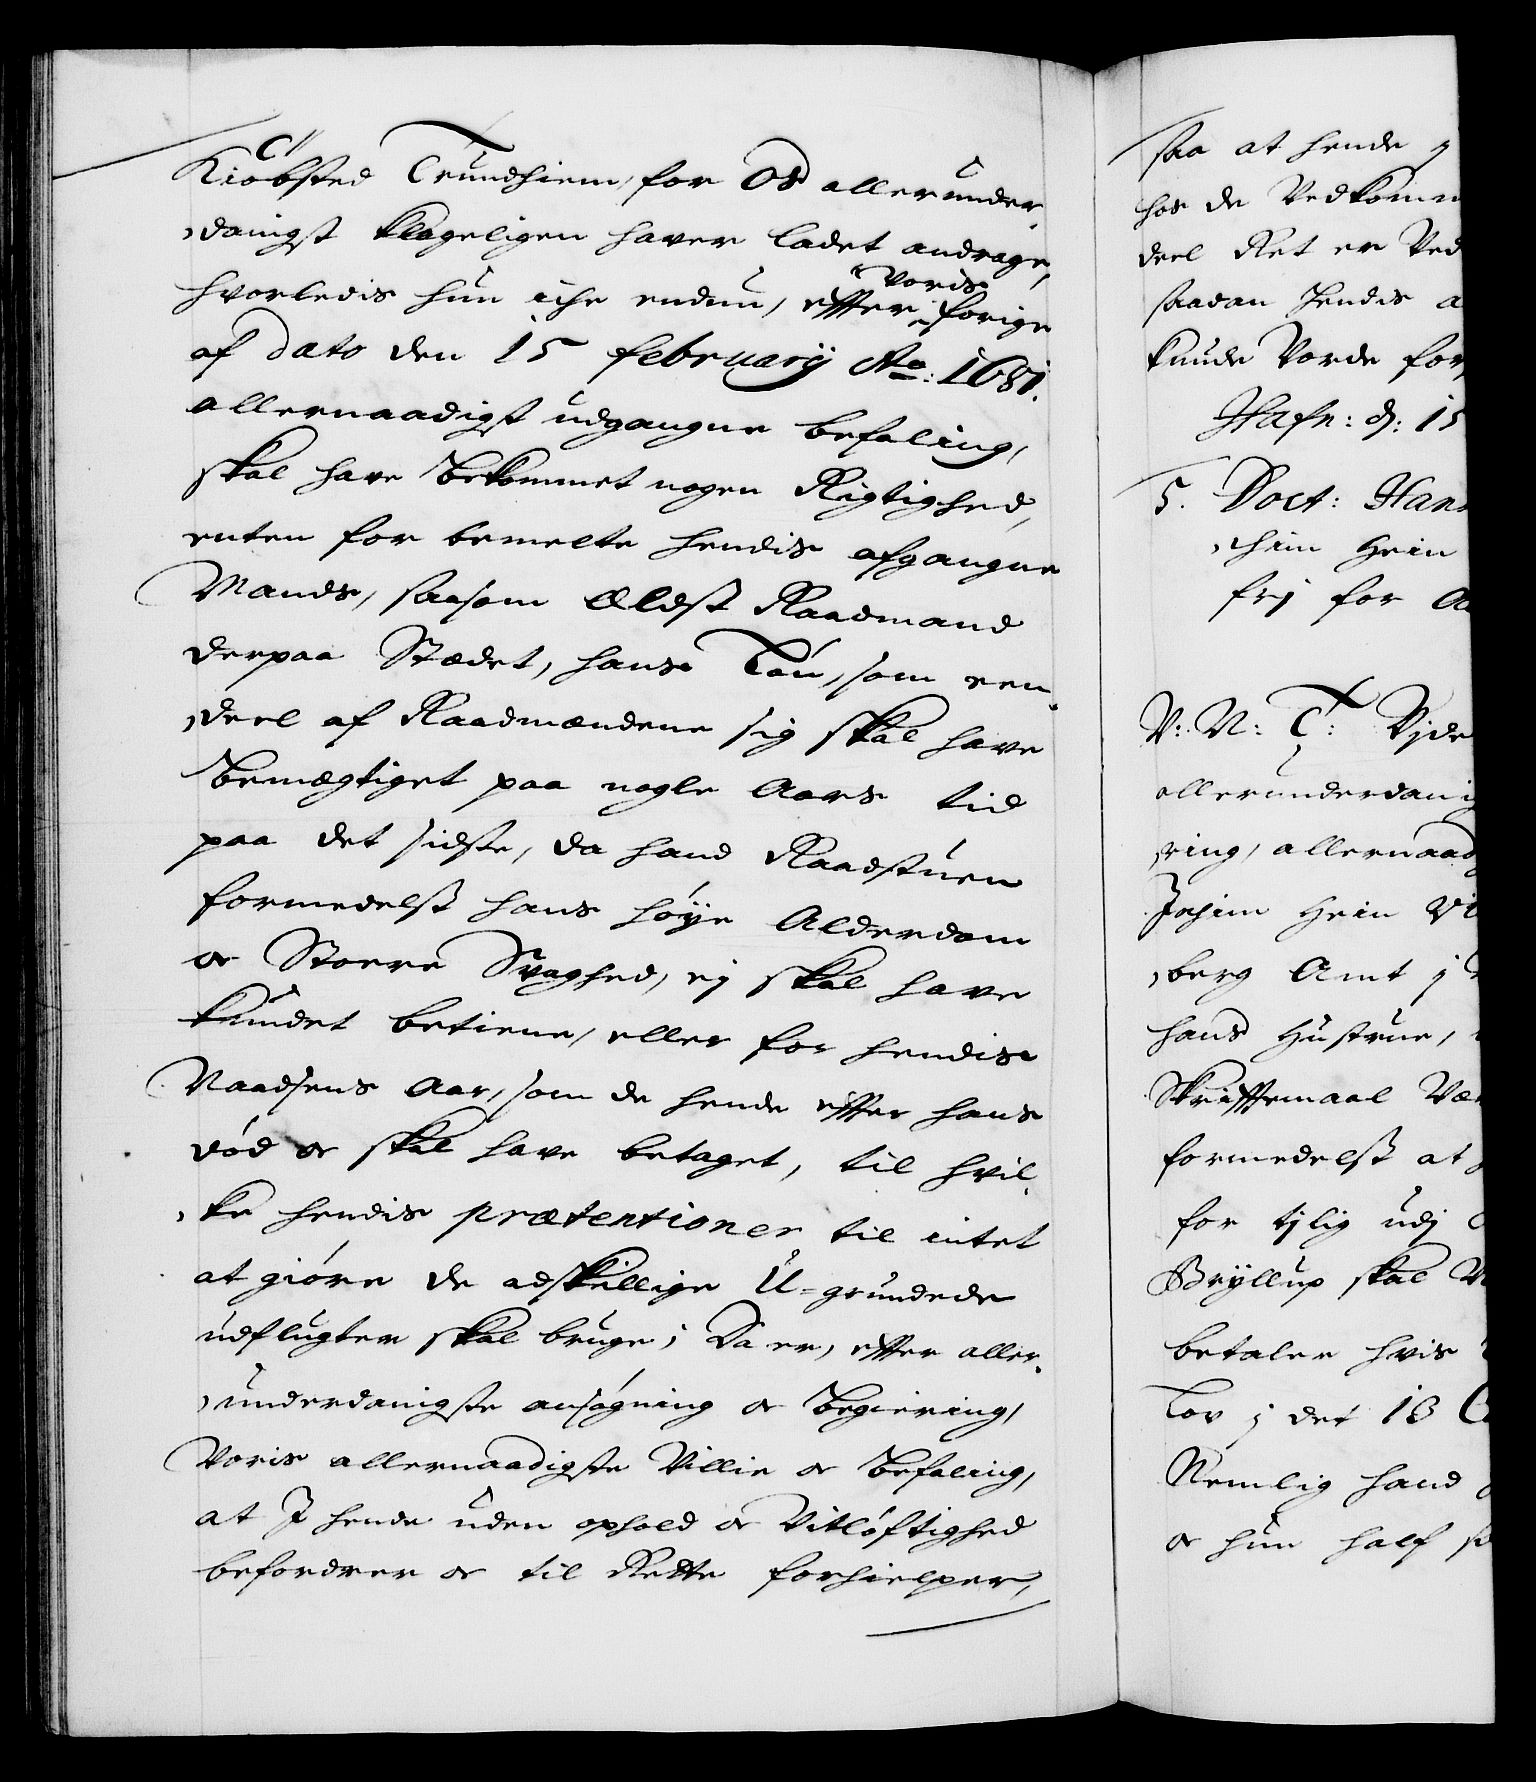 Kiøbsted Trundhiem, for Os allerunder,
,danigst klageligen haver ladet andrage,
hvorledis hun iche endnu, effter Voris forige
af Dato den 15 february Ao: 1681.
allernaadigst udgangne befaling,
skal have bekommet nogen Rigtighed,
enten for bemelte hendis afgangne
Mands, saasom Eldst Raadmand
derpaa Stædet, hans Løn, som een,
,deel af Raadmændene sig skal have
bemægtiget paa nogle Aars tid
paa det sidste, da hand Raadstuen
formedelst hans høye Alderdom
oc Stoere Svaghed, ej skal have
kundet betiene, eller for hendis
Naadsens Aar, som de hende effter hans
død oc skal have betaget, til hvil,
,ke hendis prætentioner til intet
at giøre de adskillige U-grundede
udflugter skal bruge; Da er, effter aller,
,underdanigste ansøgning oc begiering,
Voris allernaadigste Villie oc befaling,
at I hende uden ophold oc Vitløftighed
befordrer oc til Rette forhielper,
saa at hende
hos de Vedkomm
deel Ret er Ved
saadan hendis
kunde Vorde for
Hafn: d: 15
5. Doct: Hans
,chim Hein
frj for
V: N: T: Vide
allerunderdanig
,ring, allernaad
Jochim Hein
,berg Amt j
hans Hustrue,
Skrifftemaal
formedelst at
for tjlig udj
Bryllup skal
betaler hvis
Lov j det 13
Nemlig hand
oc hun half